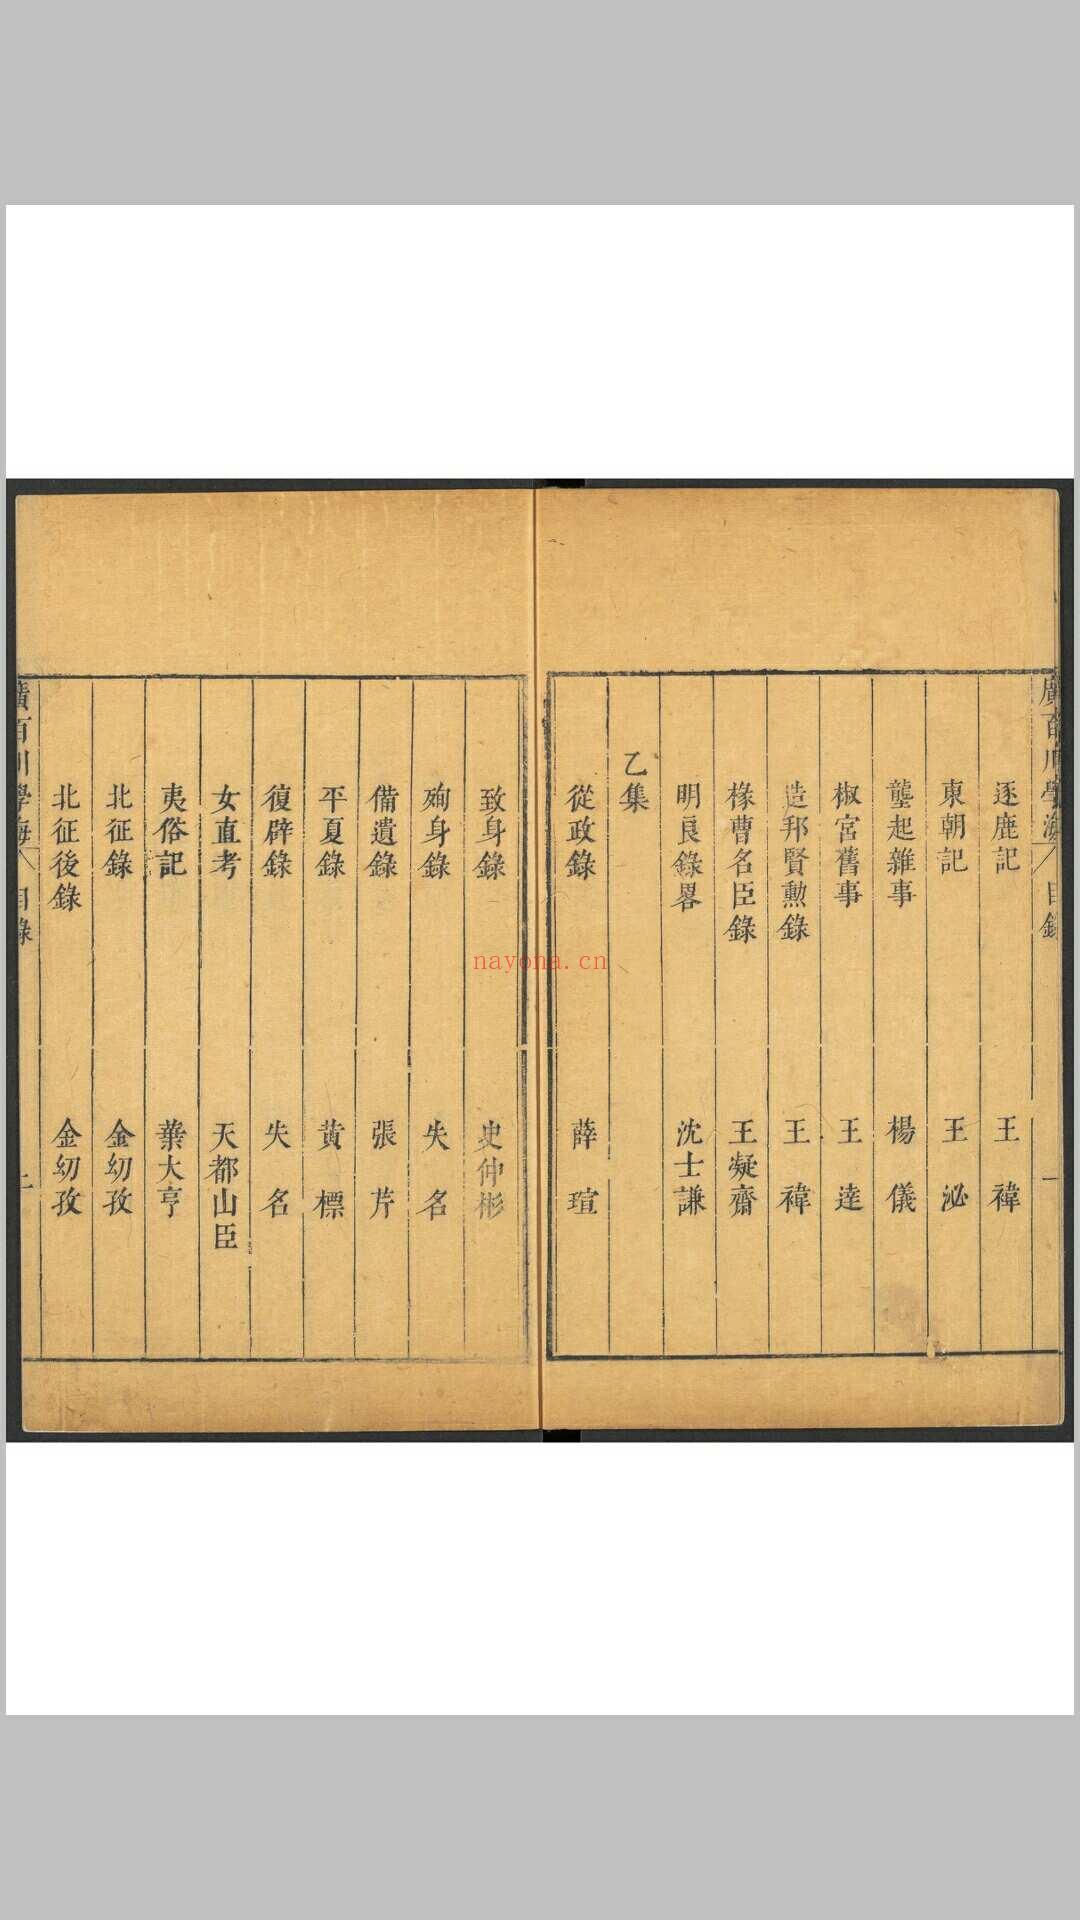 廣百川學海 目錄 一
逐鹿記 王禕
東朝記 王泌
壟起雜事 楊儀
椒宮舊事 王達
造邦賢勳錄 王禕
椽曹名臣錄 王凝齋
明良錄畧 沈士謙
乙集
從政錄 薛瑄
致身錄 史仲彬
殉身錄 失名
備遺錄 張芹
平夏錄 黃標
復辟錄 失名
女直考 天都山臣
夷俗記 葉大亨
北征錄 金幼孜
北征後錄 金幼孜
廣百川學海 目錄
nayona.cn